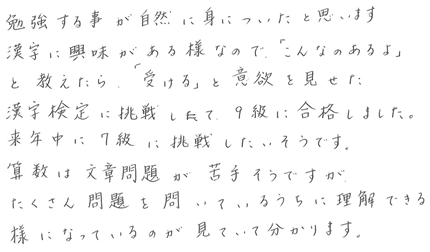 勉強する事が自然に身についたと思います
漢字に興味がある様なので、「こんなのあるよ」
と教えたら、「受ける」と意欲を見せた
漢字検定に挑戦したて、9級に合格しました。
来年中に7級に挑戦したいそうです。
算数は文章問題が苦手そうですが、
たくさん問題を問いているうちに理解できる
様になっているのが見ていて分かります。